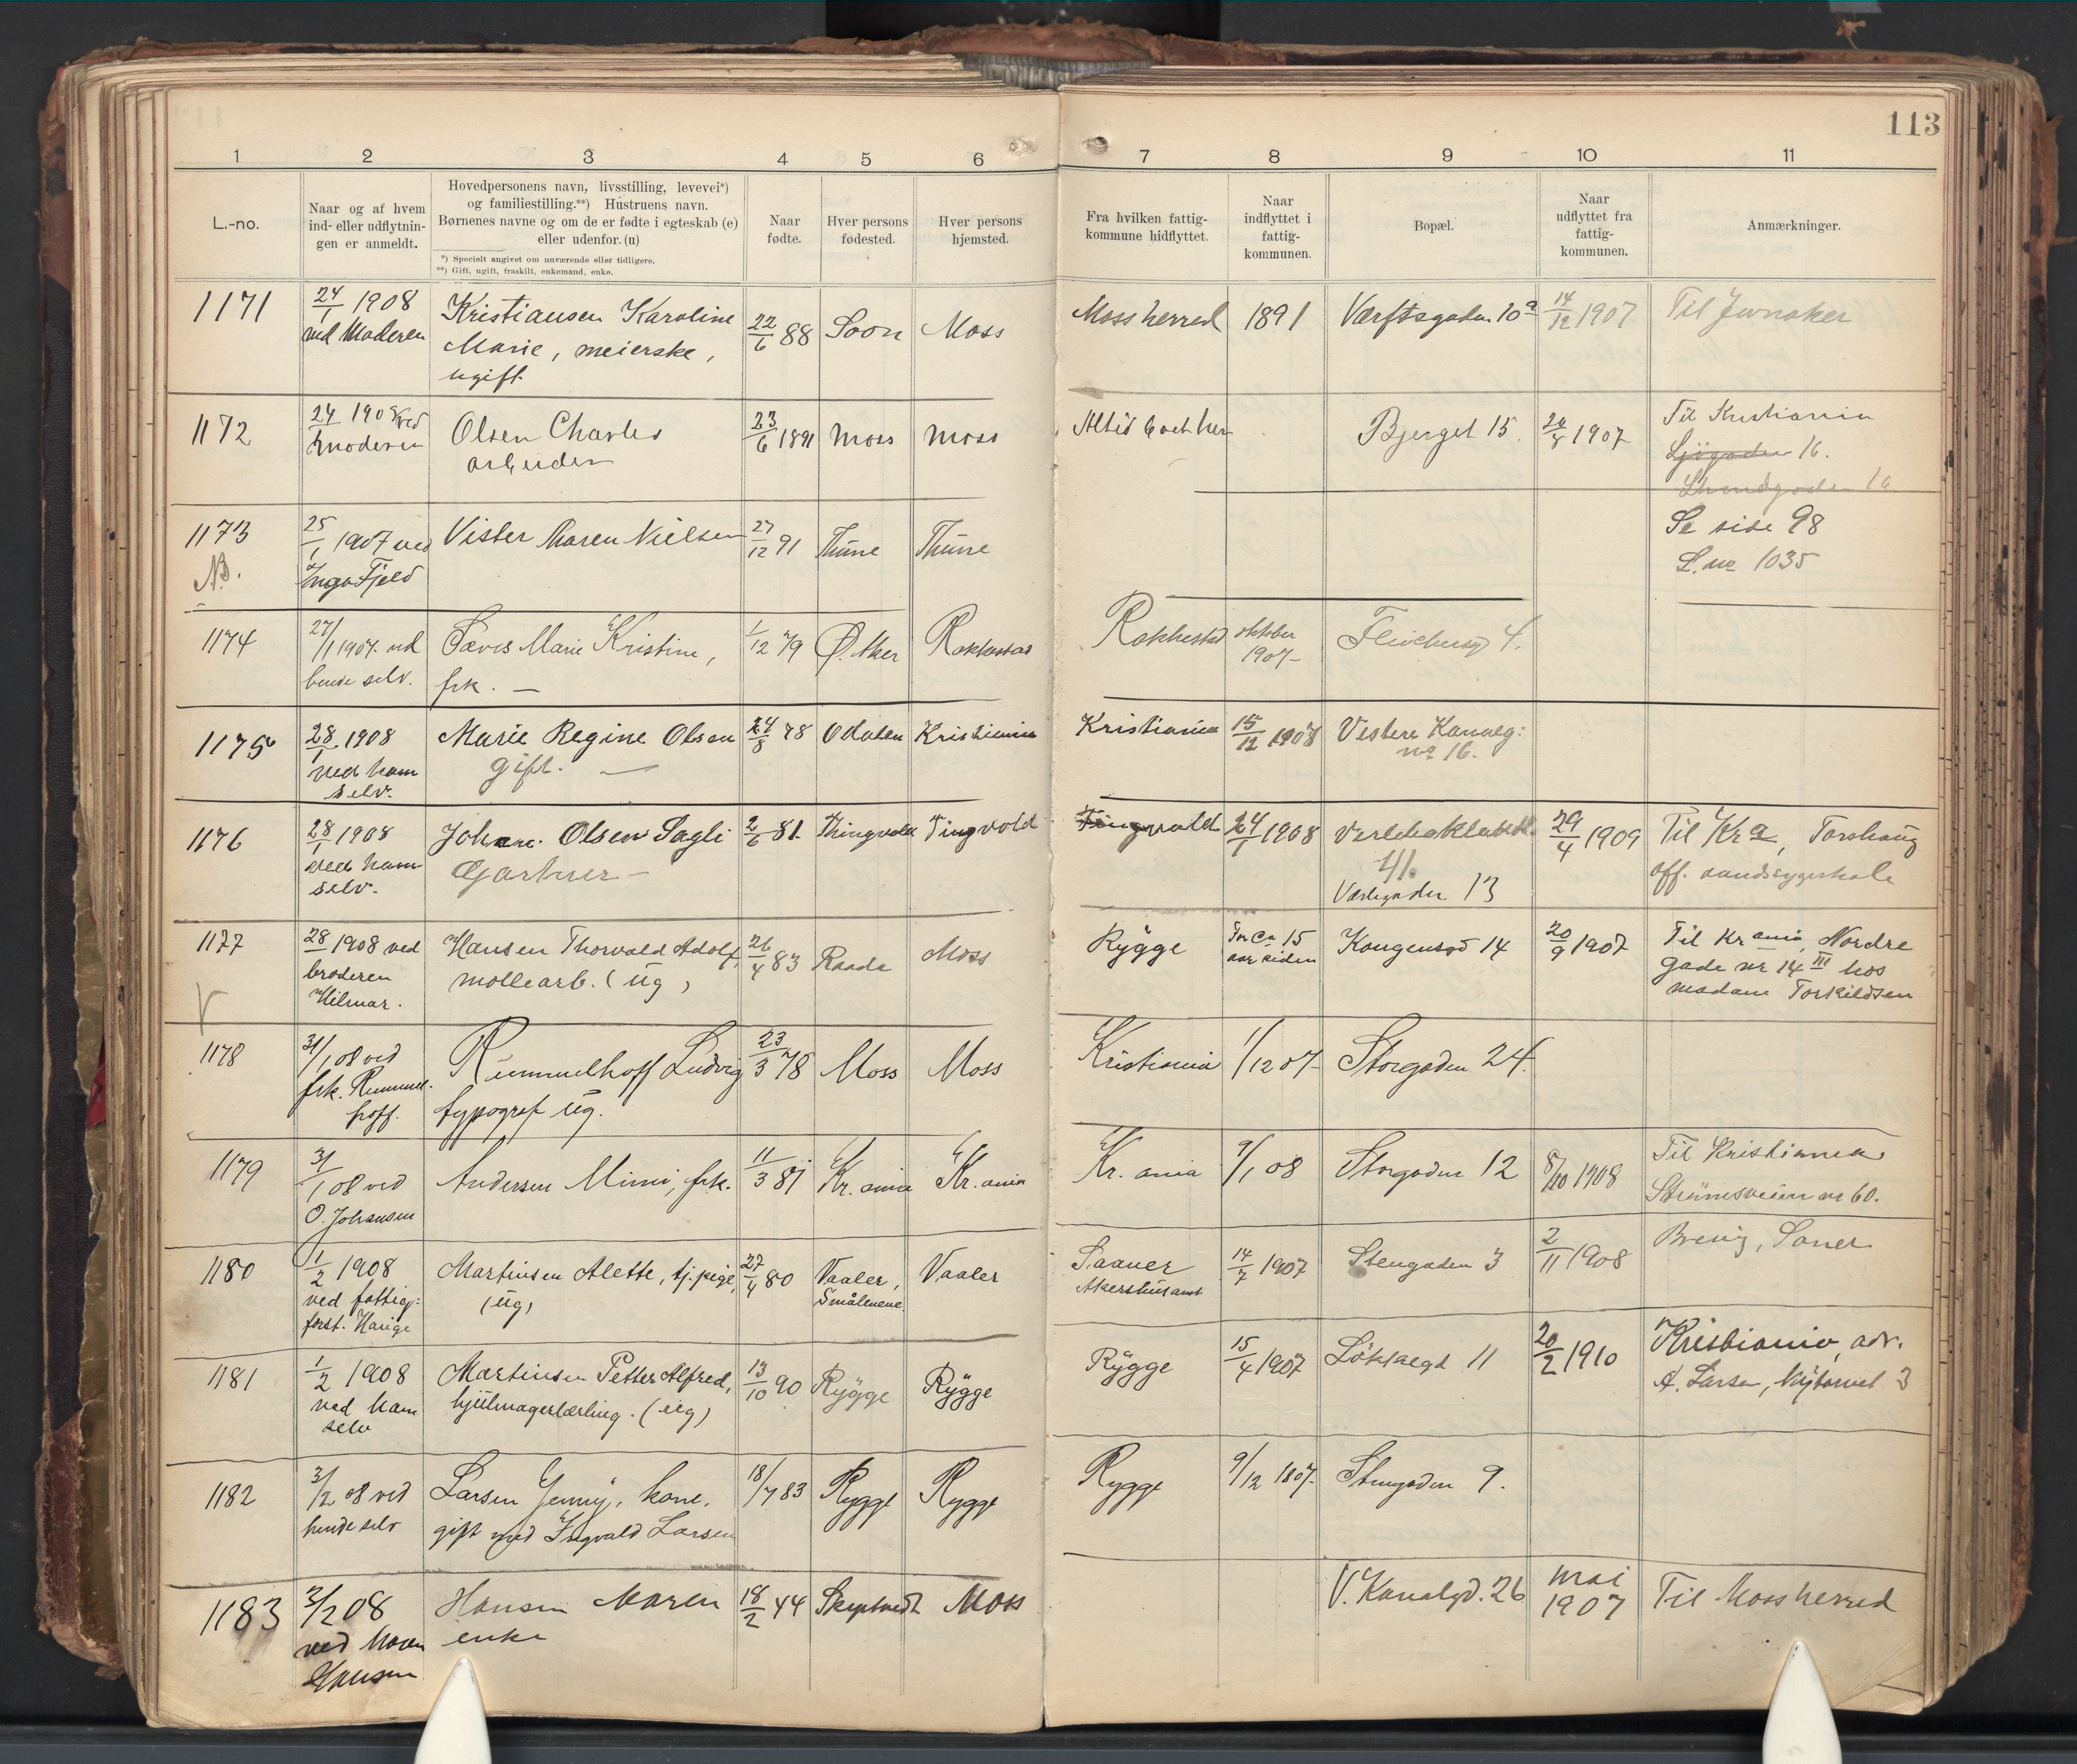 113
1 2 3 4 5 6 7 8 9 10 11
L.-no.
Naar og af hvem
ind- eller udflytnin-
gen er anmeldt.
Hovedpersonens navn, livsstilling, levevei*)
og familiestilling.**) Hustruens navn.
Børnenes navne og om de er fødte i egteskab (e)
eller udenfor. (u)
*) Specielt angivet om nuværende eller tidligere.
**) Gift, ugift, fraskilt, enkemand, enke.
Naar
fødte.
Hver persons
fødested.
Hver persons
hjemsted.
Fra hvilken fattig-
kommune hidflyttet.
Naar
indflyttet i
fattig-
kommunen.
Bopæl.
Naar
udflyttet fra
fattig-
kommunen.
Anmærkninger.
1171 24/1 1908 Kristiansen Karoline 22/6 88 Soon Moss Moss herred 1891 Værftsgaden 10a 14/12 1907 Til Jevnaker
ved Moderen Marie, meierske,
ugift
1172 24 1908 ved Olsen Charles 23/6 1891 Moss Moss Altid boet her Bjerget 15. 20/8 1907 Til Kristiania
moderen arbeider Sjøgaden 16.
16
1173 25/1 1907 ved Vister Maren Nielsen 27/12 91 Thune Thune Se side 98
NB. Inga Fjeld L. no 1035
1174 27/1 1907 ved Marie Kristine, 1/12 79 Ø. Aker Rakkestad Rakkestad oktober
1907 4.
hende selv. frk. —
1175 28/1 1908 Marie Regine Olsen 24/8 78 Odalen Kristiania Kristiania 15/12 1908 Vestere Kanalg:
no 16.
ved ham gift. —
selv.
1176 28/1 1908 Johan. Olsen Sagli 2/6 81. Thingvold Tingvold Tingvold 24/1 1908 41. 29/4 1909 Til Kra, Torshaug
ved ham Gartner — Værlegaden 13 off. sandsygeskole
selv.
1177 28 1908 ved Hansen Thorvald Adolf, 26/4 83 Raade Moss Rygge For Ca 15
aar siden Kongensgd 14 20/9 1907 Til Krania, Nordre
broderen møllearb. (ug) gade nr 14 III hos
Hilmar. madam Torkildsen
V
1178 31/1 08 ved Rummelhoff Ludvig 23/3 78 Moss Moss Kristiania 1/12 07 Storgaden 24.
frk. Rummel- typograf ug.
hoff.
1179 31/1 08 ved Andersen Mimi, frk. 11/3 81 Kr.ania Kr.ania Kr.ania 9/1 08 Storgaden 12 8/10 1908 Til Kristiania
O. Johansen Strømsveien nr 60.
1180 1/2 1908 Martinsen Alette, tj.pige, 27/4 80 Vaaler, Vaaler Saaner 14/7 1907 Stengaden 3 2/11 1908 Brevig, Saner
ved fattig- (ug) Smålenene Akershus amt
forst. Hauge
1181 1/2 1908 Martinsen Petter Alfred, 13/10 90 Rygge Rygge Rygge 15/4 1907 Løkkegd 11 20/2 1910 Kristiania, adr.
ved ham hjulmagerlærling. (ug) A. Larsen, Nytorvet 3
selv
1182 3/2 08 ved Larsen Jenny, kone. 18/7 83 Rygge Rygge Rygge 9/12 1807. Stengaden 9.
hende selv gift med Ingvald Larsen
1183 3/2 08 Hansen Maren 18/2 44 Skiptvedt Moss V. Kanalgd. 26 mai
1907 Til Moss herred
ved Maren enke
Hansen